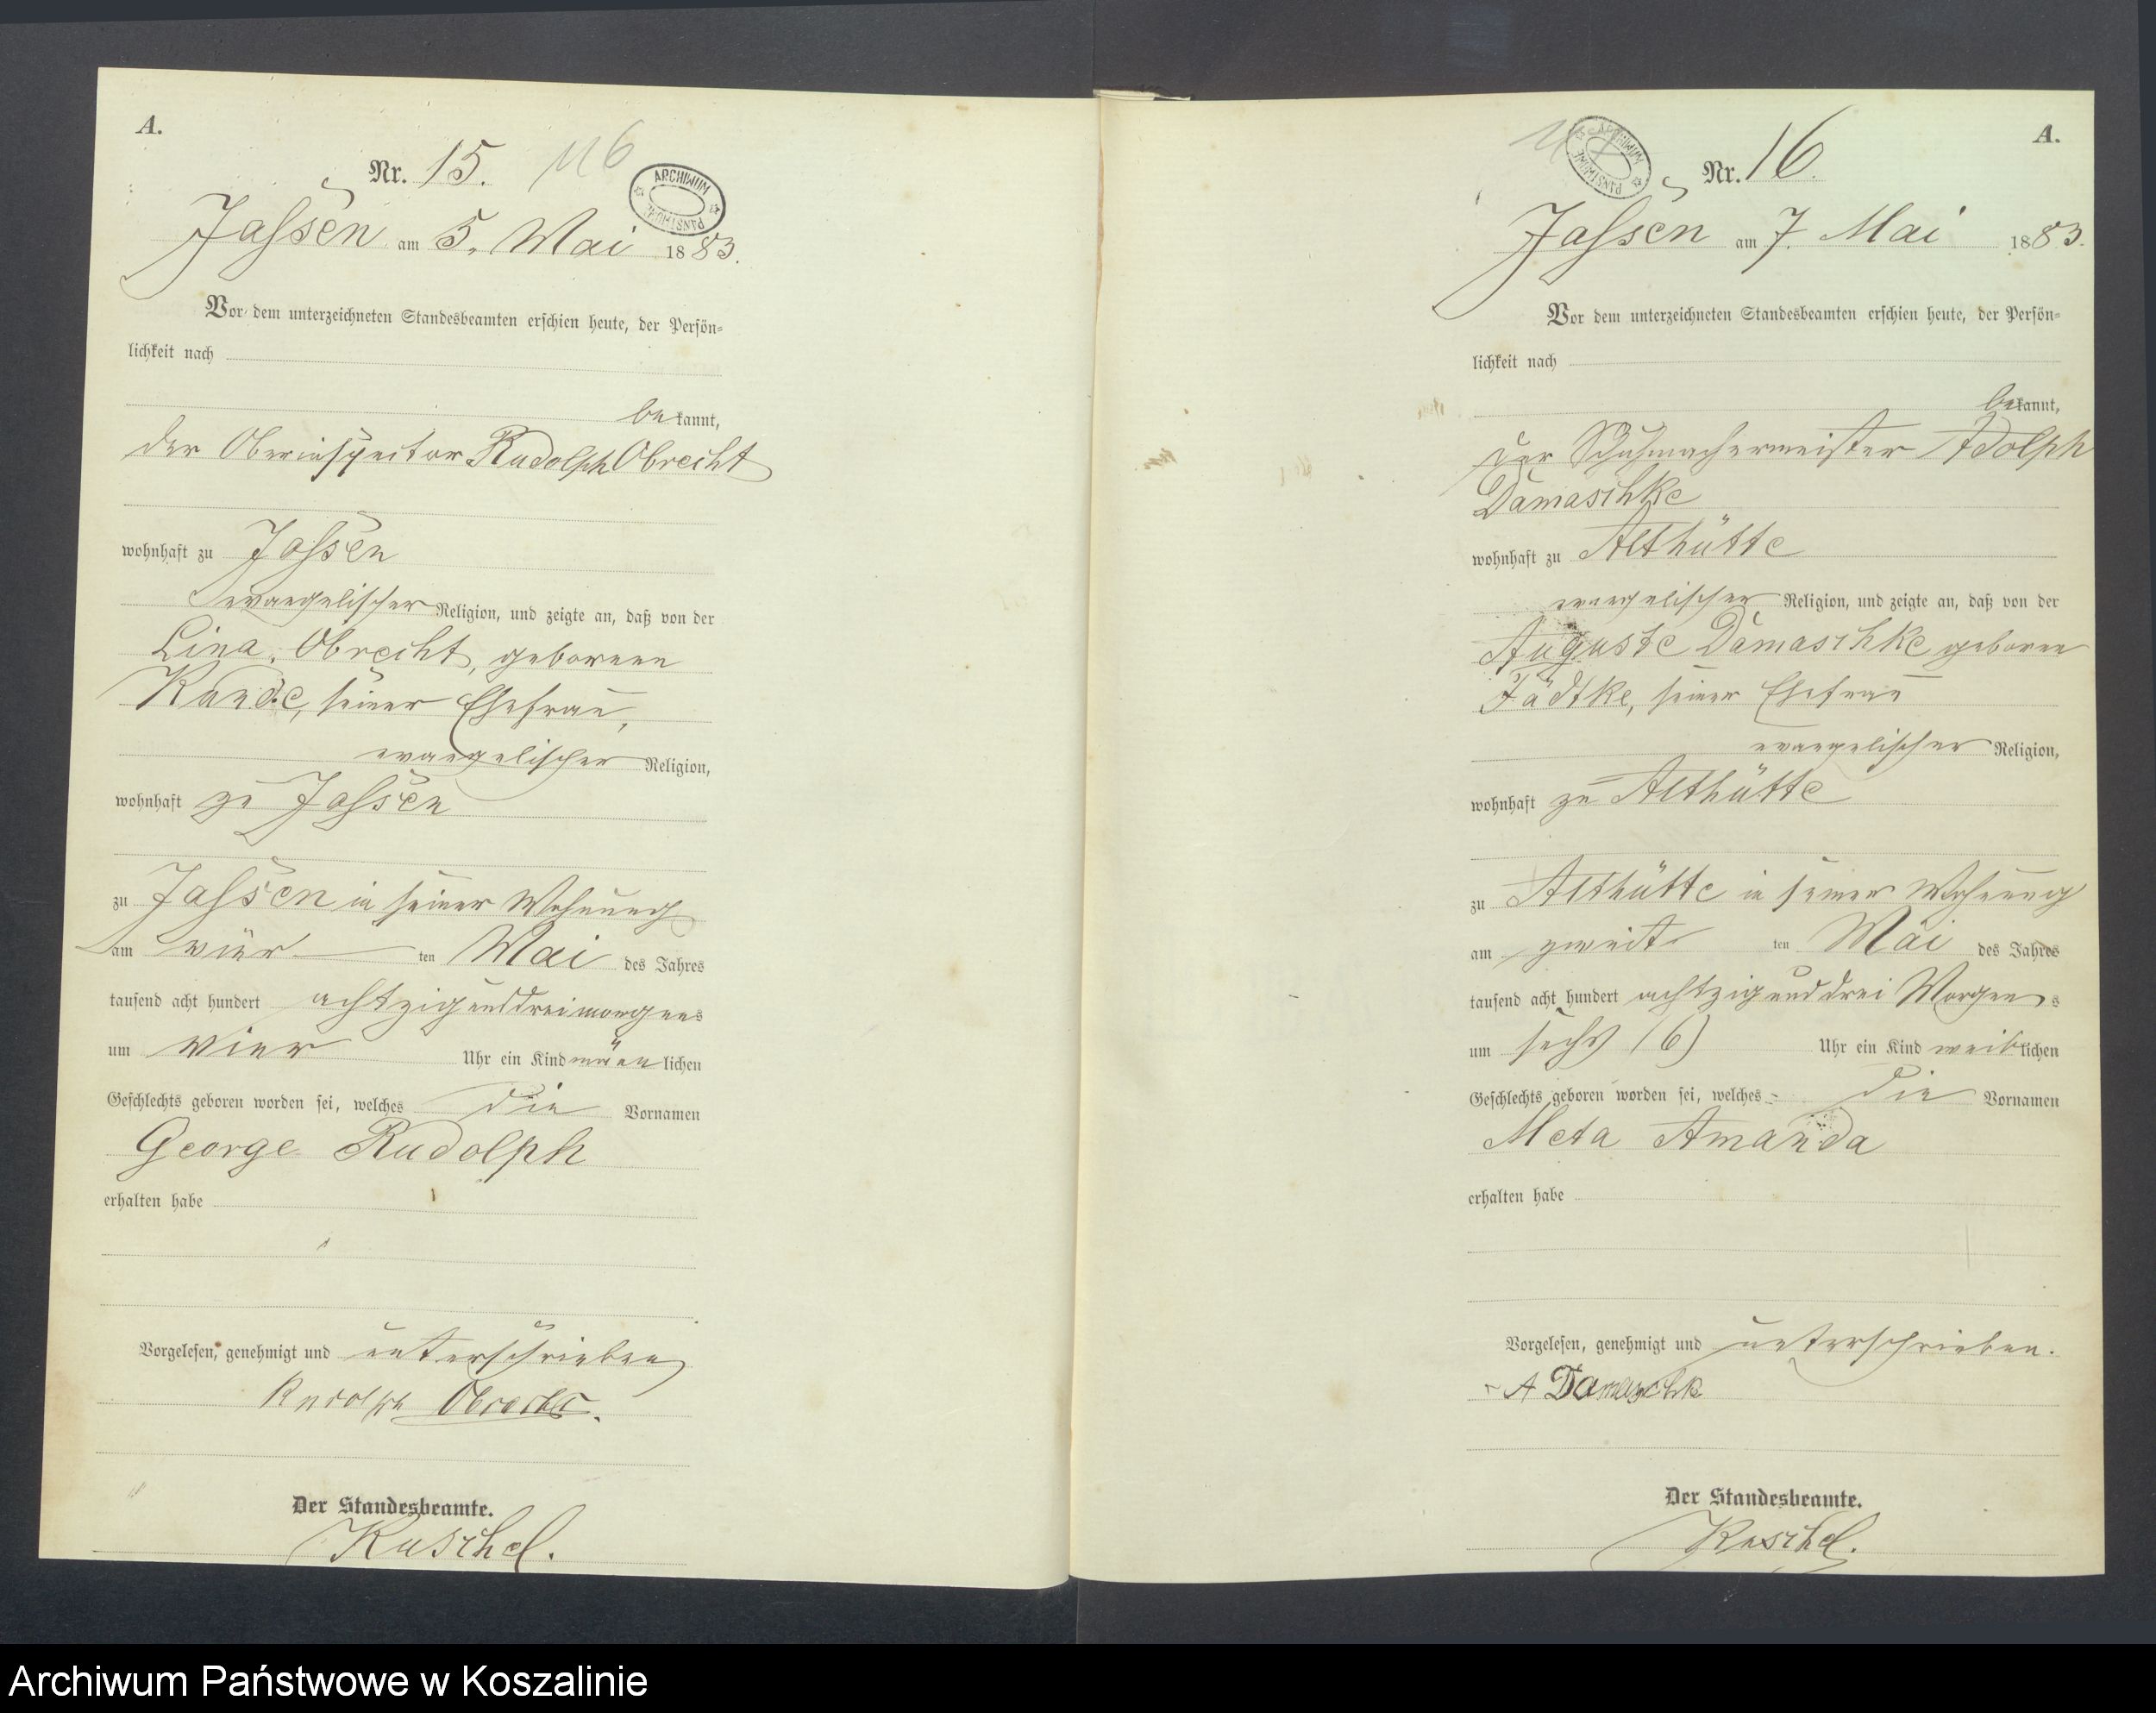 A.
Nr. 15. 116
ARCHIWUM PAŃSTWOWE
Jassen am 5. Mai 1883.
Vor dem unterzeichneten Standesbeamten erschien heute, der Persön=
lichkeit nach
bekannt,
der Oberinspector Rudolph Obrecht
wohnhaft zu Jassen
evangelischer Religion, und zeigte an, daß von der
Lina Obrecht, geborenen
Kunde, seiner Ehefrau,
evangelischer Religion,
wohnhaft zu Jassen
zu Jassen in seiner Wohnung
am vier ten Mai des Jahres
tausend acht hundert achtzig und drei morgens
um vier Uhr ein Kind männlichen
Geschlechts geboren worden sei, welches die Vornamen
George Rudolph
erhalten habe
Vorgelesen, genehmigt und unterschrieben
Rudolph Obrecht.
Der Standesbeamte.
Kuschel.
A.
ARCHIWUM PAŃSTWOWE
Nr. 16.
Jassen am 7. Mai 1883.
Vor dem unterzeichneten Standesbeamten erschien heute, der Persön=
lichkeit nach
bekannt,
der Schuhmachermeister Adolph
Damaschke
wohnhaft zu Althütte
evangelischer Religion, und zeigte an, daß von der
Auguste Damaschke geboren
Jädtke, seiner Ehefrau
evangelischer Religion,
wohnhaft zu Althütte
zu Althütte in seiner Wohnung
am zweit ten Mai des Jahres
tausend acht hundert achtzig und drei Morgens
um sechs (6) Uhr ein Kind weiblichen
Geschlechts geboren worden sei, welches die Vornamen
Meta Amanda
erhalten habe
Vorgelesen, genehmigt und unterschrieben.
A Damaschk
Der Standesbeamte.
Kuschel.
Archiwum Państwowe w Koszalinie